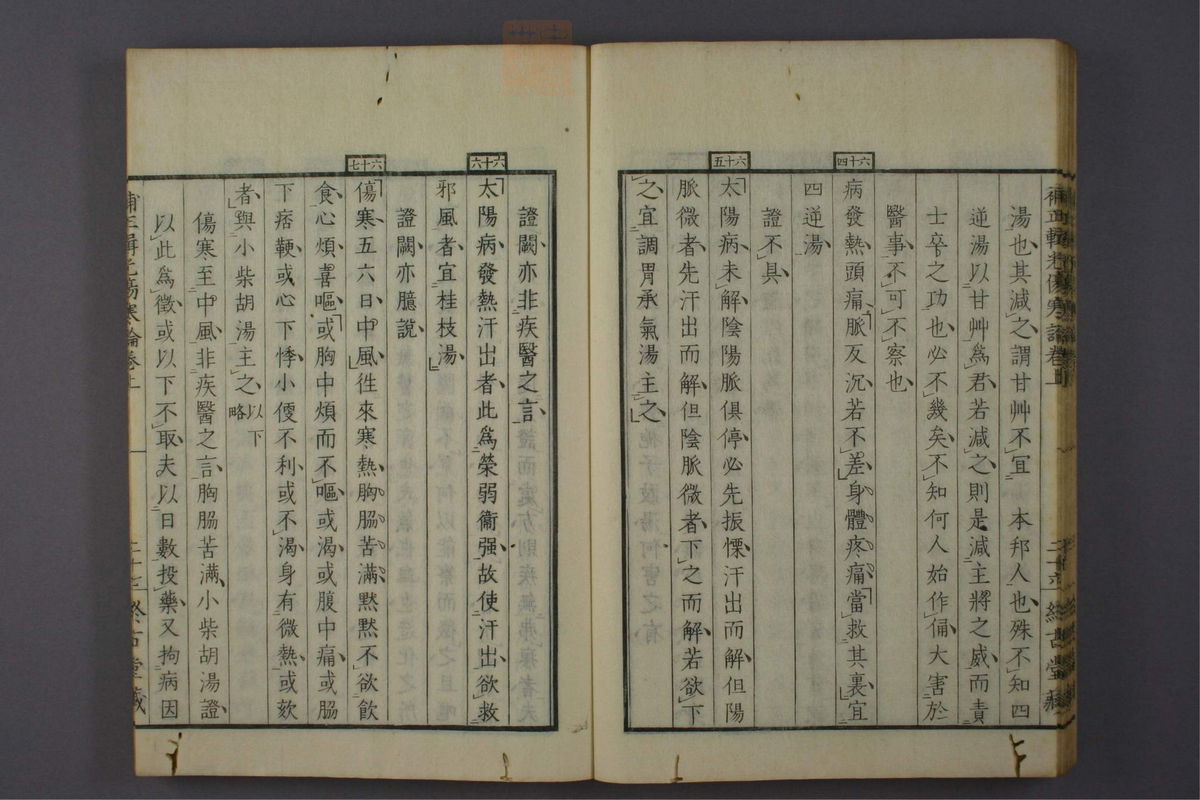 湯也其減之謂甘艸不宜本邦人也殊不知四
逆湯以甘艸爲君若減之則是減主將之威而責
士卒之功也必不幾矣不知何人始作俑大害於
醫事不可不察也
六十四
病發熱頭痛脈反沉若不差身體疼痛當救其裏宜
四逆湯
證不具
六十五
太陽病未解陰陽脈俱停必先振慄汗出而解但陽
脈微者先汗出而解但陰脈微者下之而解若欲下
之宜調胃承氣湯主之
證闕亦非疾醫之言
六十六
太陽病發熱汗出者此爲榮弱衞强故使汗出欲救
邪風者宜桂枝湯
證闕亦臆說
六十七
傷寒五六日中風徃來寒熱胸脇苦滿黙黙不欲飮
食心煩喜嘔或胸中煩而不嘔或渴或腹中痛或脇
下痞鞕或心下悸小便不利或不渴身有微熱或欬
者與小柴胡湯主之以下略
傷寒至中風非疾醫之言胸脇苦滿小柴胡湯證
以此爲徵或以下不取夫以日數投藥又拘病因